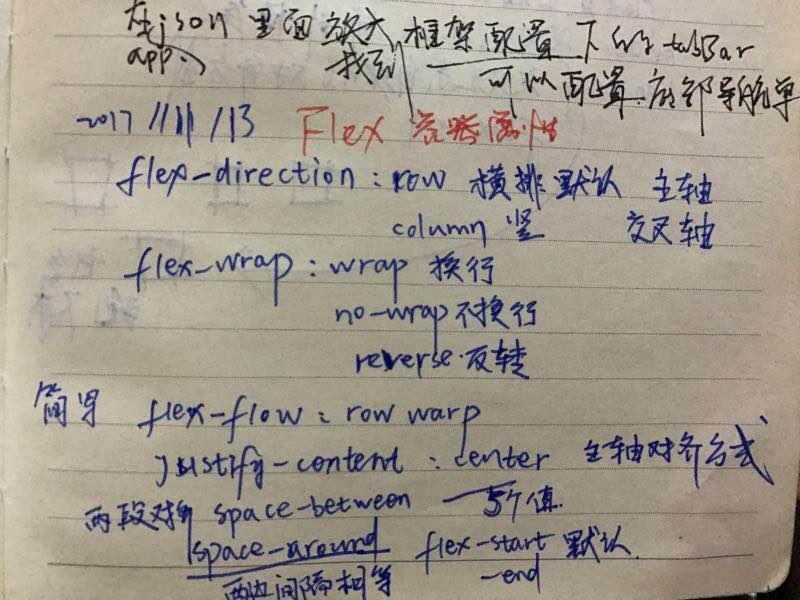 在json里面放大框架配置下的tabBar
app.
找到 可以配置.底部导航单
2017/11/13 Flex 容器属性
flex-direction:row 横排默认 主轴
column 竖 交叉轴
flex-wrap:wrap 换行
no-wrap 不换行
reverse.反转
简写 flex-flow:row warp
justify-content:center 主轴对齐方式
两段对齐 space-between 5个值.
space-around flex-start 默认.
两边间隔相等 -end